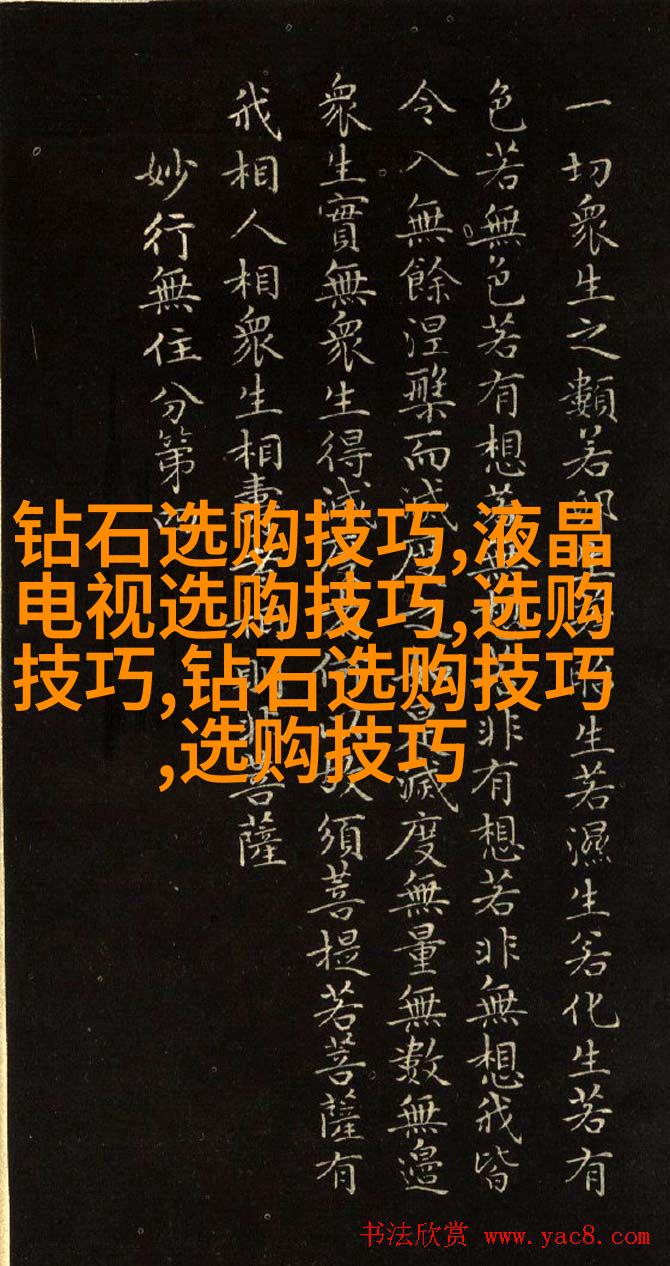 一切衆生之類若卵生若濕生若化生若有
色若無色若有想若非有想若非無想我皆
令入無餘涅槃而滅度之是滅度無量無數無邊
衆生實無衆生得滅何以故須菩提若菩薩有
我相人相衆生相壽非菩薩
妙行無住分第四
钻石选购技巧,液晶
电视选购技巧,选购
技巧,钻石选购技巧
,选购技巧
书法欣赏 www.yac8.com